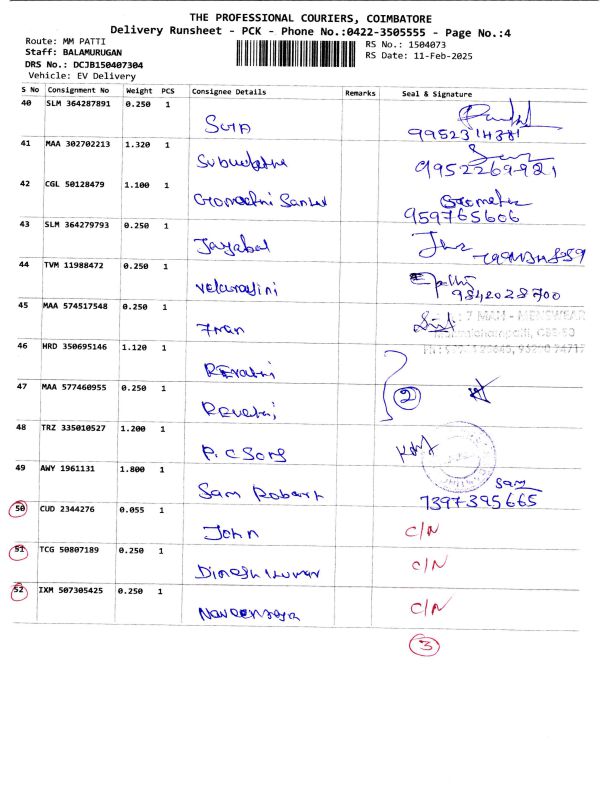 THE PROFESSIONAL COURIERS, COIMBATORE
Delivery Runsheet - PCK - Phone No.:0422-3505555 - Page No.:4
Route: MM PATTI
RS No.: 1504073
Staff: BALAMURUGAN
RS Date: 11-Feb-2025
DRS No.: DCJB150407304
Vehicle: EV Delivery
S No Consignment No Weight PCS Consignee Details Remarks Seal & Signature
40 SLM 364287891 0.250 1
9952314381
41 MAA 302702213 1.320 1
9952269921
42 CGL 50128479 1.100 1
959765606
43 SLM 364279793 0.250 1
Jayabal
44 TVM 11988472 0.250 1
9842028700
45 MAA 574517548 0.250 1
7 MAN - MENSWEAR
7 man
46 HRD 350695146 1.120 1
REvathi
47 MAA 577460955 0.250 1
2
REvathi
48 TRZ 335010527 1.200 1
P.C Sons
49 AWY 1961131 1.800 1
Sam
Sam Robert 7397395665
50 CUD 2344276 0.055 1
John C/N
51 TCG 50807189 0.250 1
Dinesh kumar C/N
52 IXM 507305425 0.250 1
C/N
3